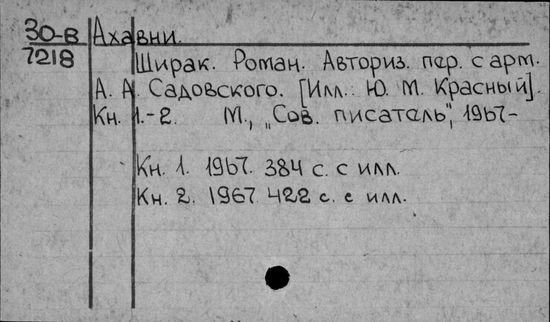 30-8 Ахавни.
7218 Ширак. Роман. Авториз. пер. с арм.
А. А. Садовского. [Илл.: Ю. М. Красный].
Кн. 1.-2. М., „Сов. писатель", 1967-
Кн. 1. 1967. 384 с. с илл.
Кн. 2. 1967. 422 с. с илл.